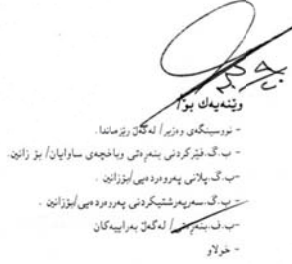 وێنەیەك بۆ/
- نووسینگەی وەزیر/ لەگەڵ رێزماندا.
- ب.گ.فێركردنی بنەڕەتی وباخچەی ساوایان/ بۆ زانین.
-ب.گ.پلانی پەروەردەیی/بۆزانین .
- ب.گ.سەرپەرشتیكردنی پەروەردەیی/بۆزانین .
-ب.ف.بنەڕەتی/ لەگەڵ بەراییەكان
- خولاو